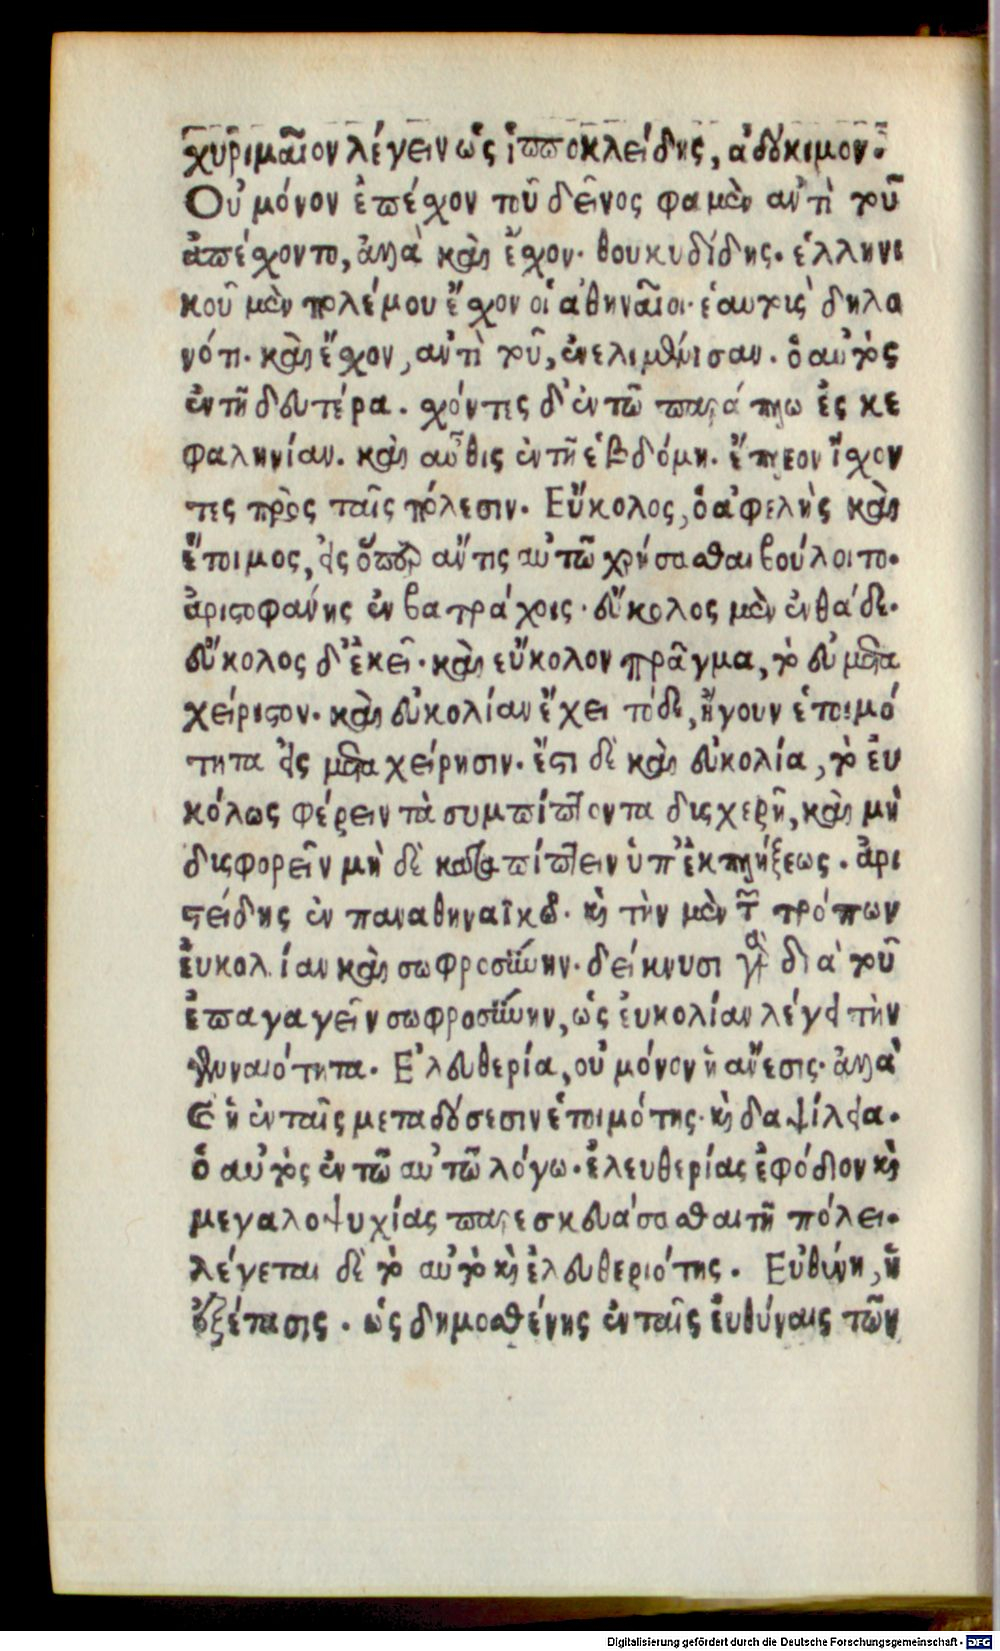 χυριμαῖον λέγειν ὡς ἱπποκλείδης, ἀδόκιμον.
Οὐ μόνον ἐπέχον τοῦ δεῖνος φαμὲν ἀντὶ τοῦ
ἀπέχοντο, ἀλλὰ καὶ ἔχον. θουκυδίδης. ἑλληνι
κοῦ μὲν πολέμου ἔχον οἱ ἀθηναῖοι. ἑαυτοὺς δηλο
νότι. καὶ ἔχον, ἀντὶ τοῦ, ἐνελιμένισαν. ὁ αὐτὸς
ἐν τῆ δευτέρα. χόντες δ' ἐν τῶ παράπλω ἐς κε
φαληνίαν. καὶ αὖθις ἐν τῆ ἑβδόμη. ἔπλεον ἴχον
τες πρὸς ταῖς πόλεσιν. Εὔκολος, ὁ ἀφελὴς καὶ
ἕτοιμος, εἰς ὅπερ ἄν τις αὐτῶ χρήσασθαι βούλοιτο.
ἀριστοφάνης ἐν βατράχοις. εὔκολος μὲν ἐνθάδε.
εὔκολος δ' ἐκεῖ. καὶ εὔκολον πρᾶγμα, τὸ εὐμετα
χείριστον. καὶ εὐκολίαν ἔχει τόδε, ἤγουν ἑτοιμό
τητα εἰς μεταχείρησιν. ἔστι δὲ καὶ εὐκολία, τὸ ἐυ
κόλως φέρειν τὰ συμπίπτοντα δισχερῆ, καὶ μὴ
δισφορεῖν μὴ δὲ καταπίπτειν ὑπ' ἐκπλήξεως. ἀρι
στείδης ἐν παναθηναϊκῶ. καὶ τὴν μὲν τῶν τρόπων
ἐυκολίαν καὶ σωφροσύνην. δείκνυσι γὰρ διὰ τοῦ
ἐπαγαγεῖν σωφροσύνην, ὡς ἐυκολίαν λέγει τὴν
γενναιότητα. Ἐλευθερία, οὐ μόνον ἡ ἄνεσις. ἀλλὰ
καὶ ἡ ἐν ταῖς μεταδόσεσιν ἑτοιμότης. καὶ δαψίλεια.
ὁ αὐτὸς ἐν τῶ αὐτῶ λόγω. ἐλευθερίας ἐφόδιον καὶ
μεγαλοψυχίας παρεσκευάσασθαι τῆ πόλει.
λέγεται δὲ τὸ αὐτὸ καὶ ἐλευθεριότης. Εὐθύνη, ἡ
ἐξέτασις. ὡς δημοσθένης ἐν ταῖς ἐυθύναις τῶν
Digitalisierung gefördert durch die Deutsche Forschungsgemeinschaft - DFG